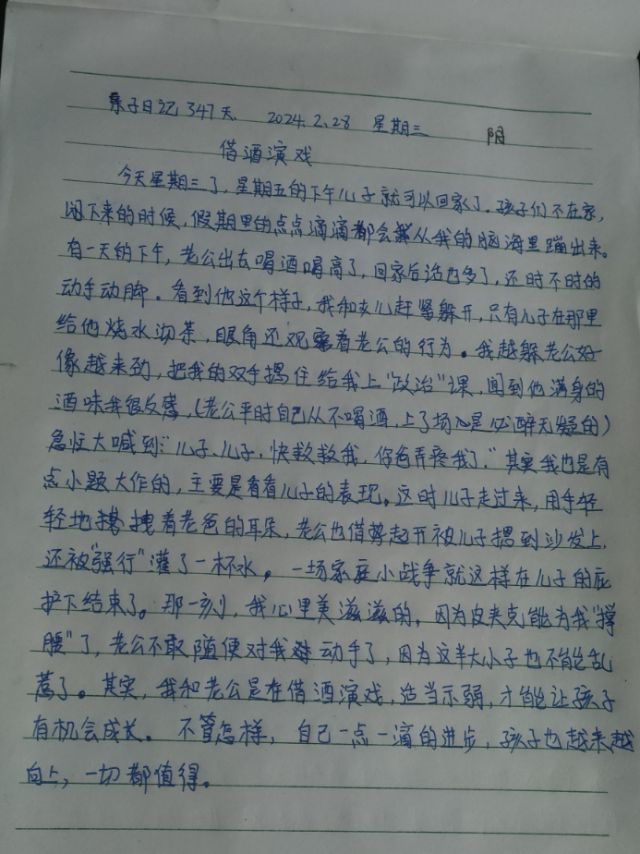 亲子日记347天 2024.2.28 星期三 阴
借酒演戏
今天星期三了，星期五的下午儿子就可以回家了。孩子们不在家，
闲下来的时候，假期里的点点滴滴都会从我的脑海里蹦出来。
有一天的下午，老公出去喝酒喝高了，回家后话也多了，还时不时的
动手动脚。看到他这个样子，我和女儿赶紧躲开，只有儿子在那里
给他烧水沏茶，眼角还观察着老公的行为。我越躲老公好
像越来劲，把我的双手摁住给我上"政治"课，闻到他满身的
酒味我很反感，（老公平时自己从不喝酒，上了场心是必醉无疑的）
急忙大喊到："儿子、儿子，快救救我，你爸弄疼我了。"其实我也是有
点小题大作的，主要是看看儿子的表现。这时儿子走过来，用手轻
轻地拽着老爸的耳朵，老公也借势起开被儿子摁到沙发上，
还被"强行"灌了一杯水。一场家庭小战争就这样在儿子的庇
护下结束了。那一刻，我心里美滋滋的。因为皮夹克能为我"撑
腰"了，老公不敢随便对我动手了，因为这半大小子也不能乱
惹了。其实，我和老公是在借酒演戏，适当示弱，才能让孩子
有机会成长。不管怎样，自己一点一滴的进步，孩子也越来越
向上，一切都值得。